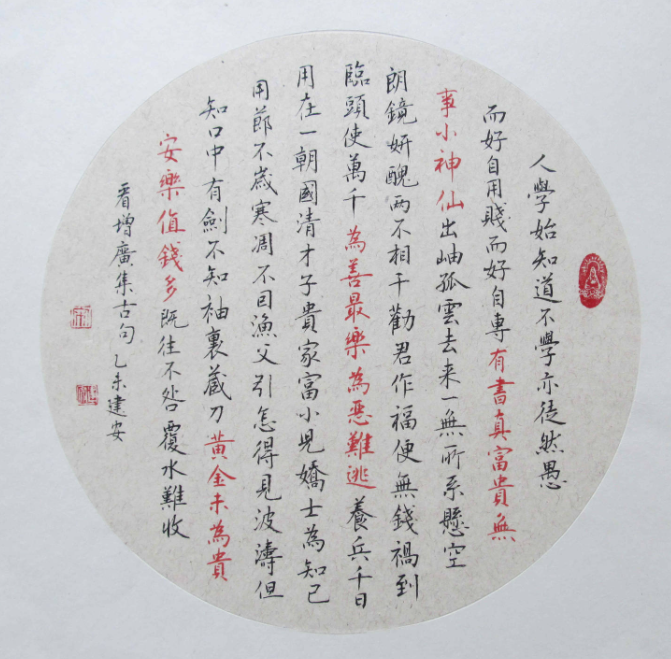 人學始知道不學亦徒然愚
而好自用賤而好自專有書真富貴無
事小神仙出岫孤雲去来一無所系懸空
朗鏡妍醜两不相干勸君作福便無錢禍到
臨頭使萬千為善最樂為惡難逃養兵千日
用在一朝國清才子貴家富小児嬌士為知己
用節不歲寒凋不因漁父引怎得見波濤但
知口中有劍不知袖裏蔵刀黄金未為貴
安樂值錢多既往不咎覆水難收
看增廣集古句乙未建安